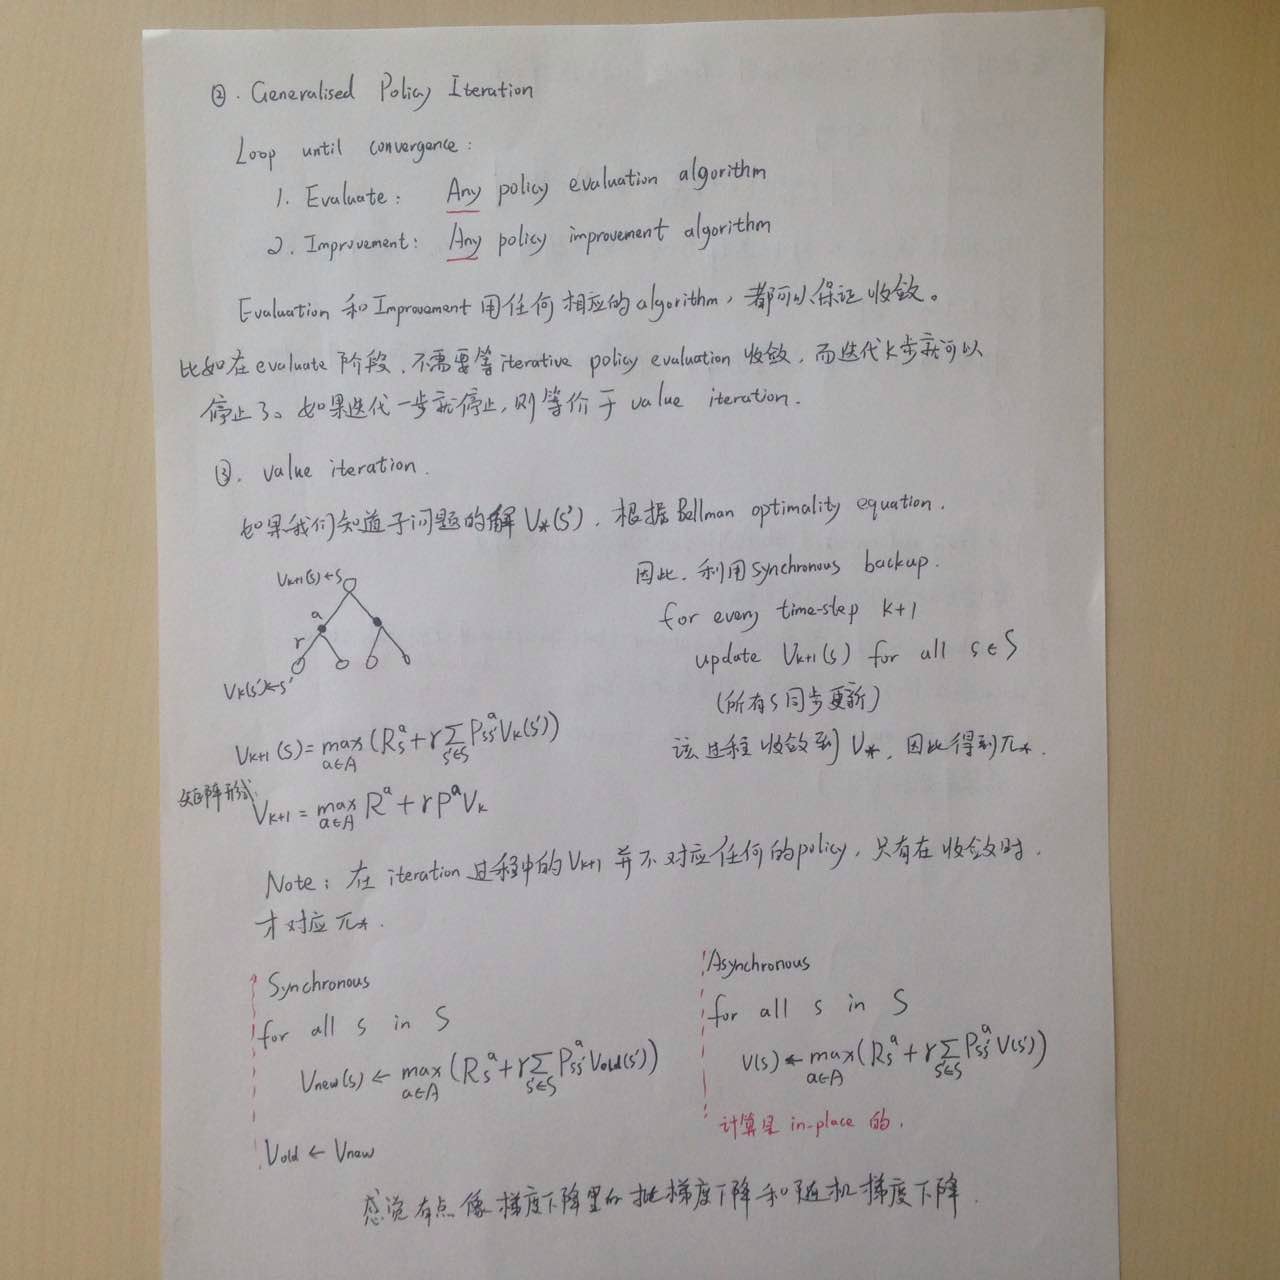 ②. Generalised Policy Iteration
Loop until convergence:
1. Evaluate: Any policy evaluation algorithm
2. Improvement: Any policy improvement algorithm
Evaluation 和 Improvement 用任何相应的 algorithm, 都可以保证收敛。
比如在 evaluate 阶段, 不需要等 iterative policy evaluation 收敛, 而迭代 k 步就可以
停止了。如果迭代一步就停止, 则等价于 value iteration.
③. value iteration.
如果我们知道子问题的解 V*(s'), 根据 Bellman optimality equation.
Vk+1(s)←s
a
r
Vk(s')←s'
Vk+1(s) = max a∈A (R_s^a + γ Σ s'∈S P_ss'^a Vk(s'))
矩阵形式:
Vk+1 = max a∈A R^a + γ P^a Vk
因此, 利用 synchronous backup.
for every time-step k+1
update Vk+1(s) for all s∈S
(所有s同步更新)
该过程收敛到 V*, 因此得到 π*.
Note: 在 iteration 过程中的 Vk+1 并不对应任何的 policy, 只有在收敛时.
才对应 π*.
Synchronous
for all s in S
Vnew(s) ← max a∈A (R_s^a + γ Σ s'∈S P_ss'^a Vold(s'))
Vold ← Vnew
Asynchronous
for all s in S
V(s) ← max a∈A (R_s^a + γ Σ s'∈S P_ss'^a V(s'))
计算是 in-place 的.
感觉有点像梯度下降里的批梯度下降和随机梯度下降.